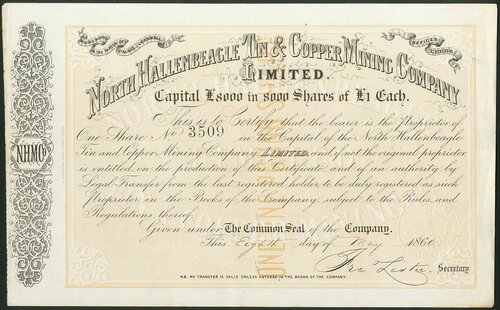 OFFICES
NORTH HALLENBEAGLE TIN & COPPER MINING COMPANY
LIMITED.
Capital £8000 in 8000 Shares of £1 Each.
This is to Certify that the bearer is the Proprietor of
One Share No 3509 in the Capital of the North Hallenbeagle
Tin and Copper Mining Company LIMITED, and if not the original proprietor
is entitled on the production of this Certificate and of an authority by
Legal Transfer from the last registered holder to be duly registered as such
Proprietor in the Books of the Company, subject to the Rules and
Regulations thereof.
Given under The Common Seal of the Company.
This Eighth day of May 1860
Fra Lester. Secretary
N.B. NO TRANSFER IS VALID UNLESS ENTERED IN THE BOOKS OF THE COMPANY.
NHMCo